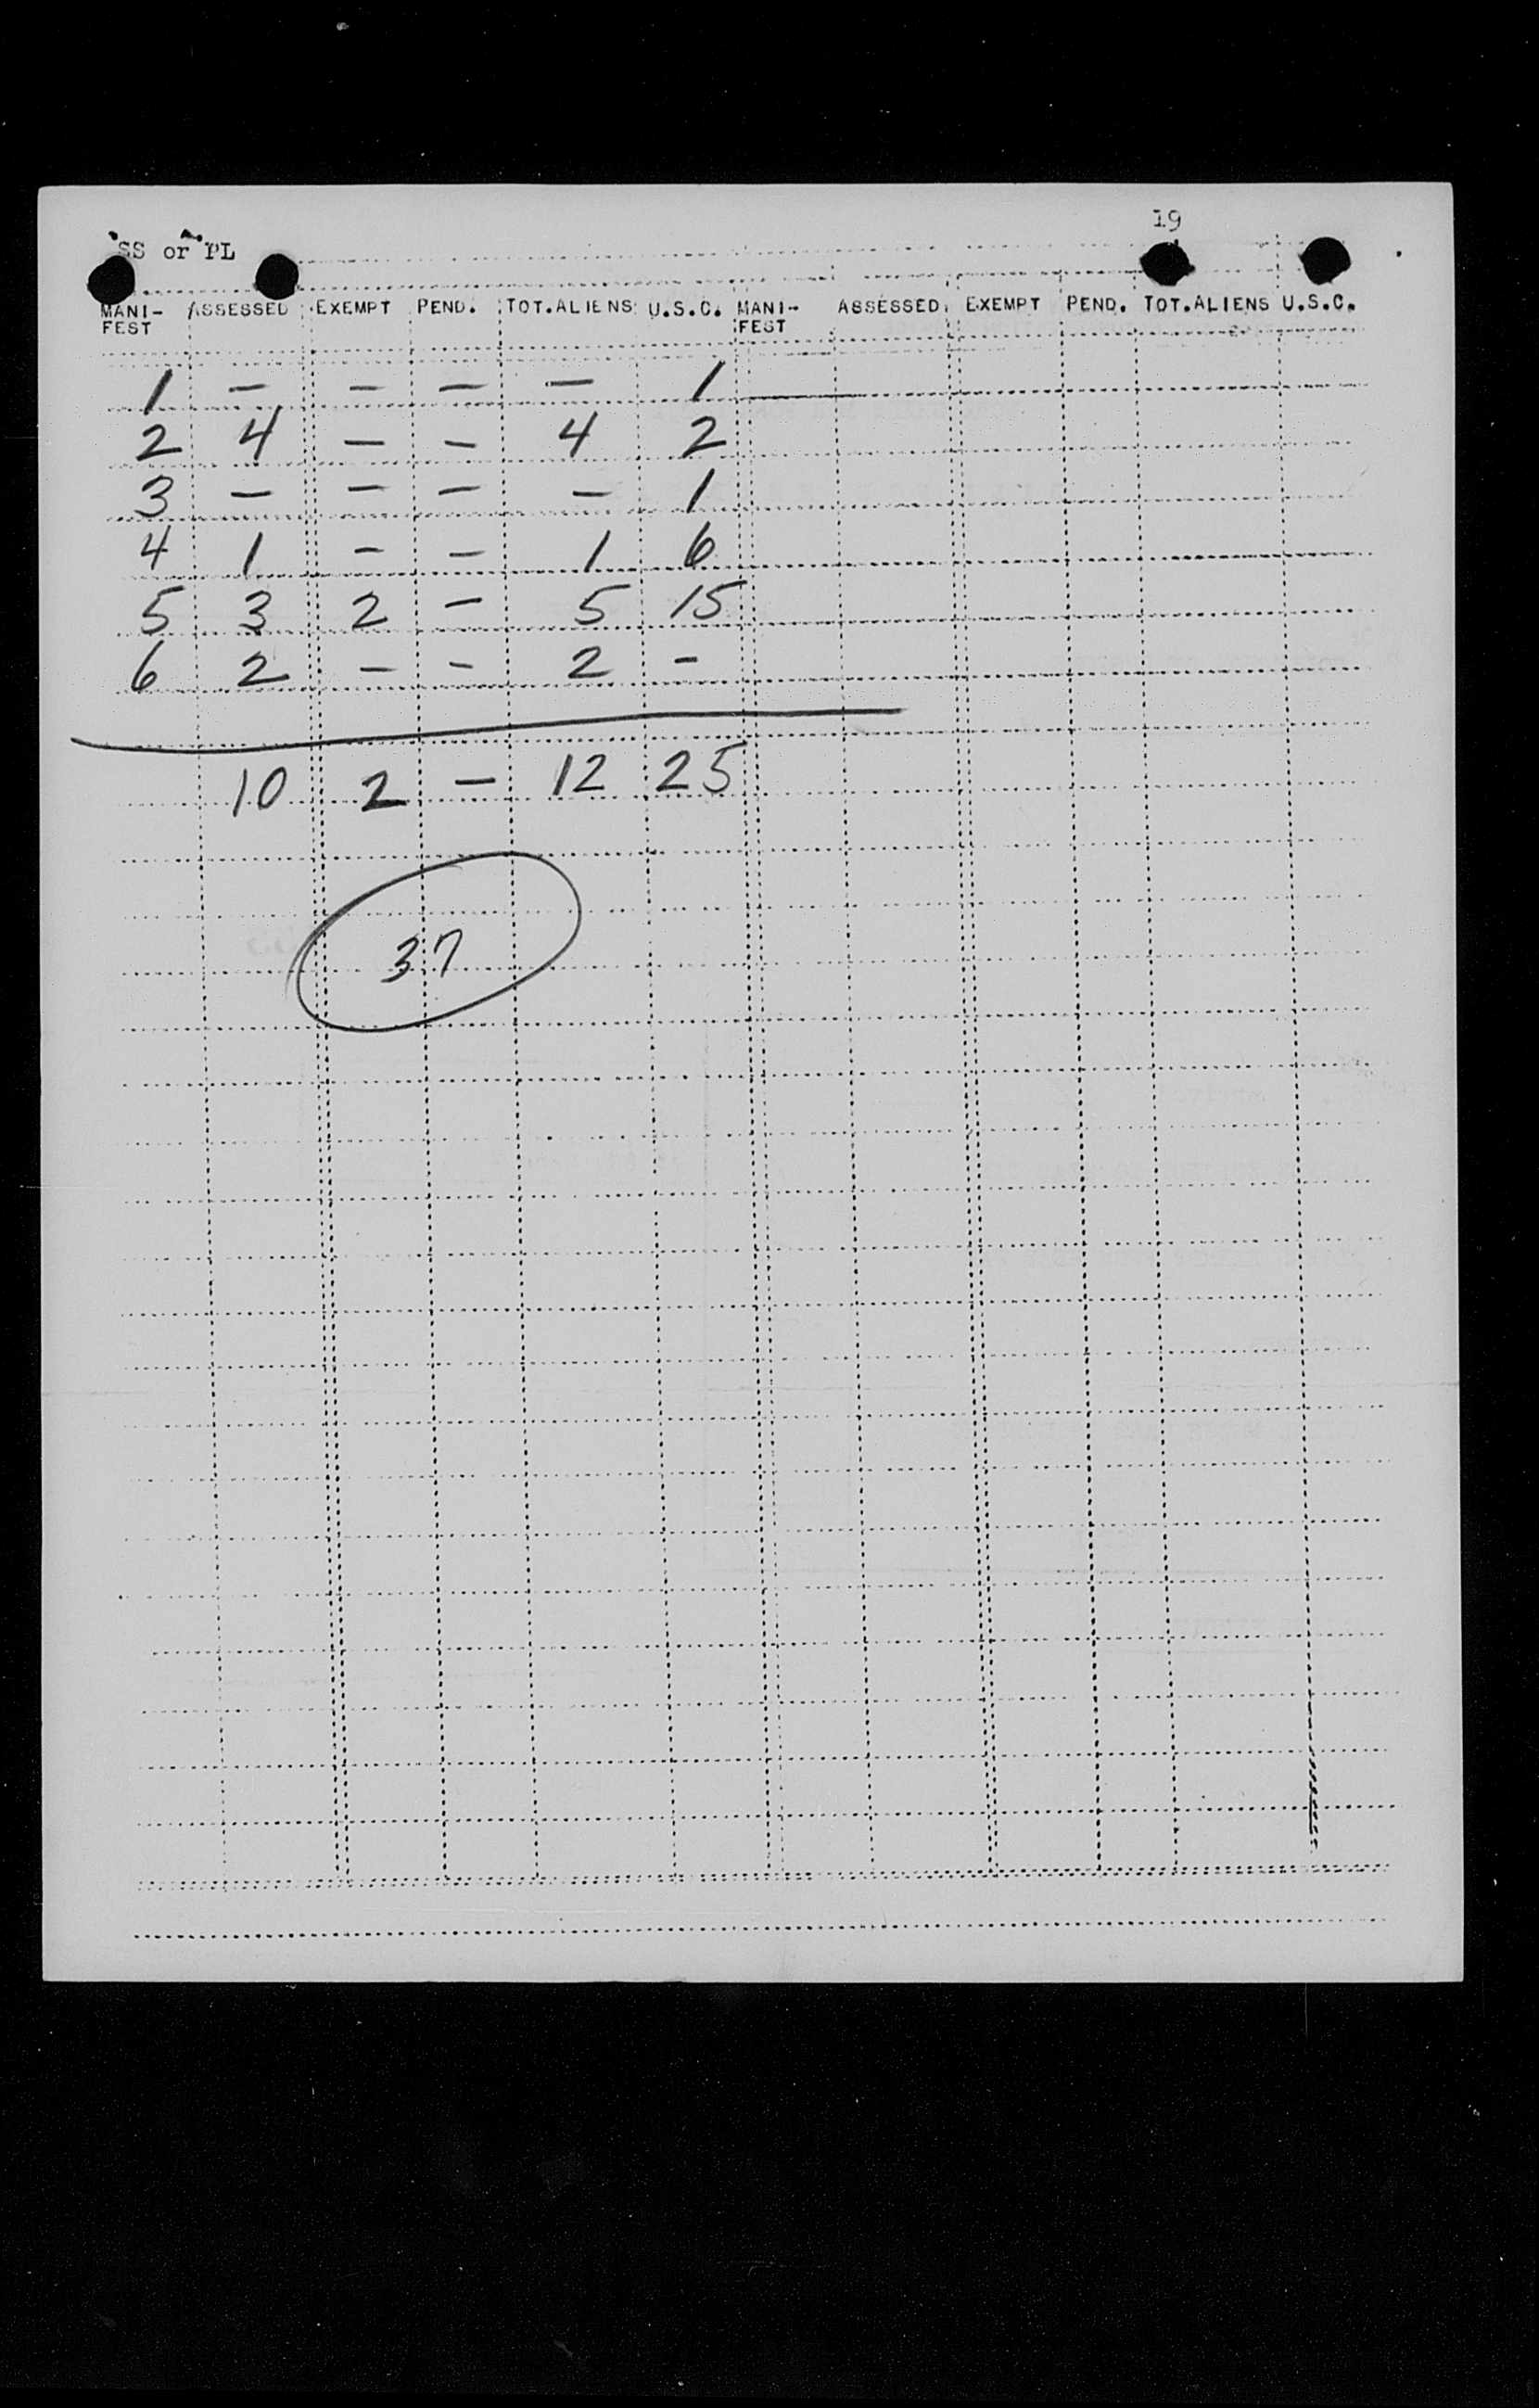 19
SS or PL
MANI- ASSESSED EXEMPT PEND. TOT.ALIENS U.S.C. MANI- ASSESSED EXEMPT PEND. TOT.ALIENS U.S.C.
FEST FEST
1 – – – – 1
2 4 – – 4 2
3 – – – – 1
4 1 – – 1 6
5 3 2 – 5 15
6 2 – – 2 –
10 2 – 12 25
37